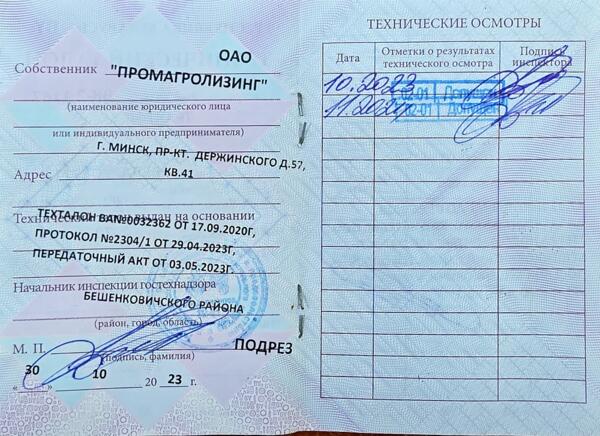 Собственник ОАО
"ПРОМАГРОЛИЗИНГ"
(наименование юридического лица
или индивидуального предпринимателя)
Г. МИНСК, ПР-КТ. ДЕРЖИНСКОГО Д.57,
Адрес КВ.41
Технический талон выдан на основании
ТЕХТАЛОН ВА№0032362 ОТ 17.09.2020Г,
ПРОТОКОЛ №2304/1 ОТ 29.04.2023Г,
ПЕРЕДАТОЧНЫЙ АКТ ОТ 03.05.2023Г.
Начальник инспекции гостехнадзора
БЕШЕНКОВИЧСКОГО РАЙОНА
(район, город, область)
М. П. ПОДРЕЗ
(подпись, фамилия)
30 10 2023 г.
ТЕХНИЧЕСКИЕ ОСМОТРЫ
Дата Отметки о результатах технического осмотра Подпись инспектора
10.2023 02-01 Допущен
11.2024 02-01 Допущен